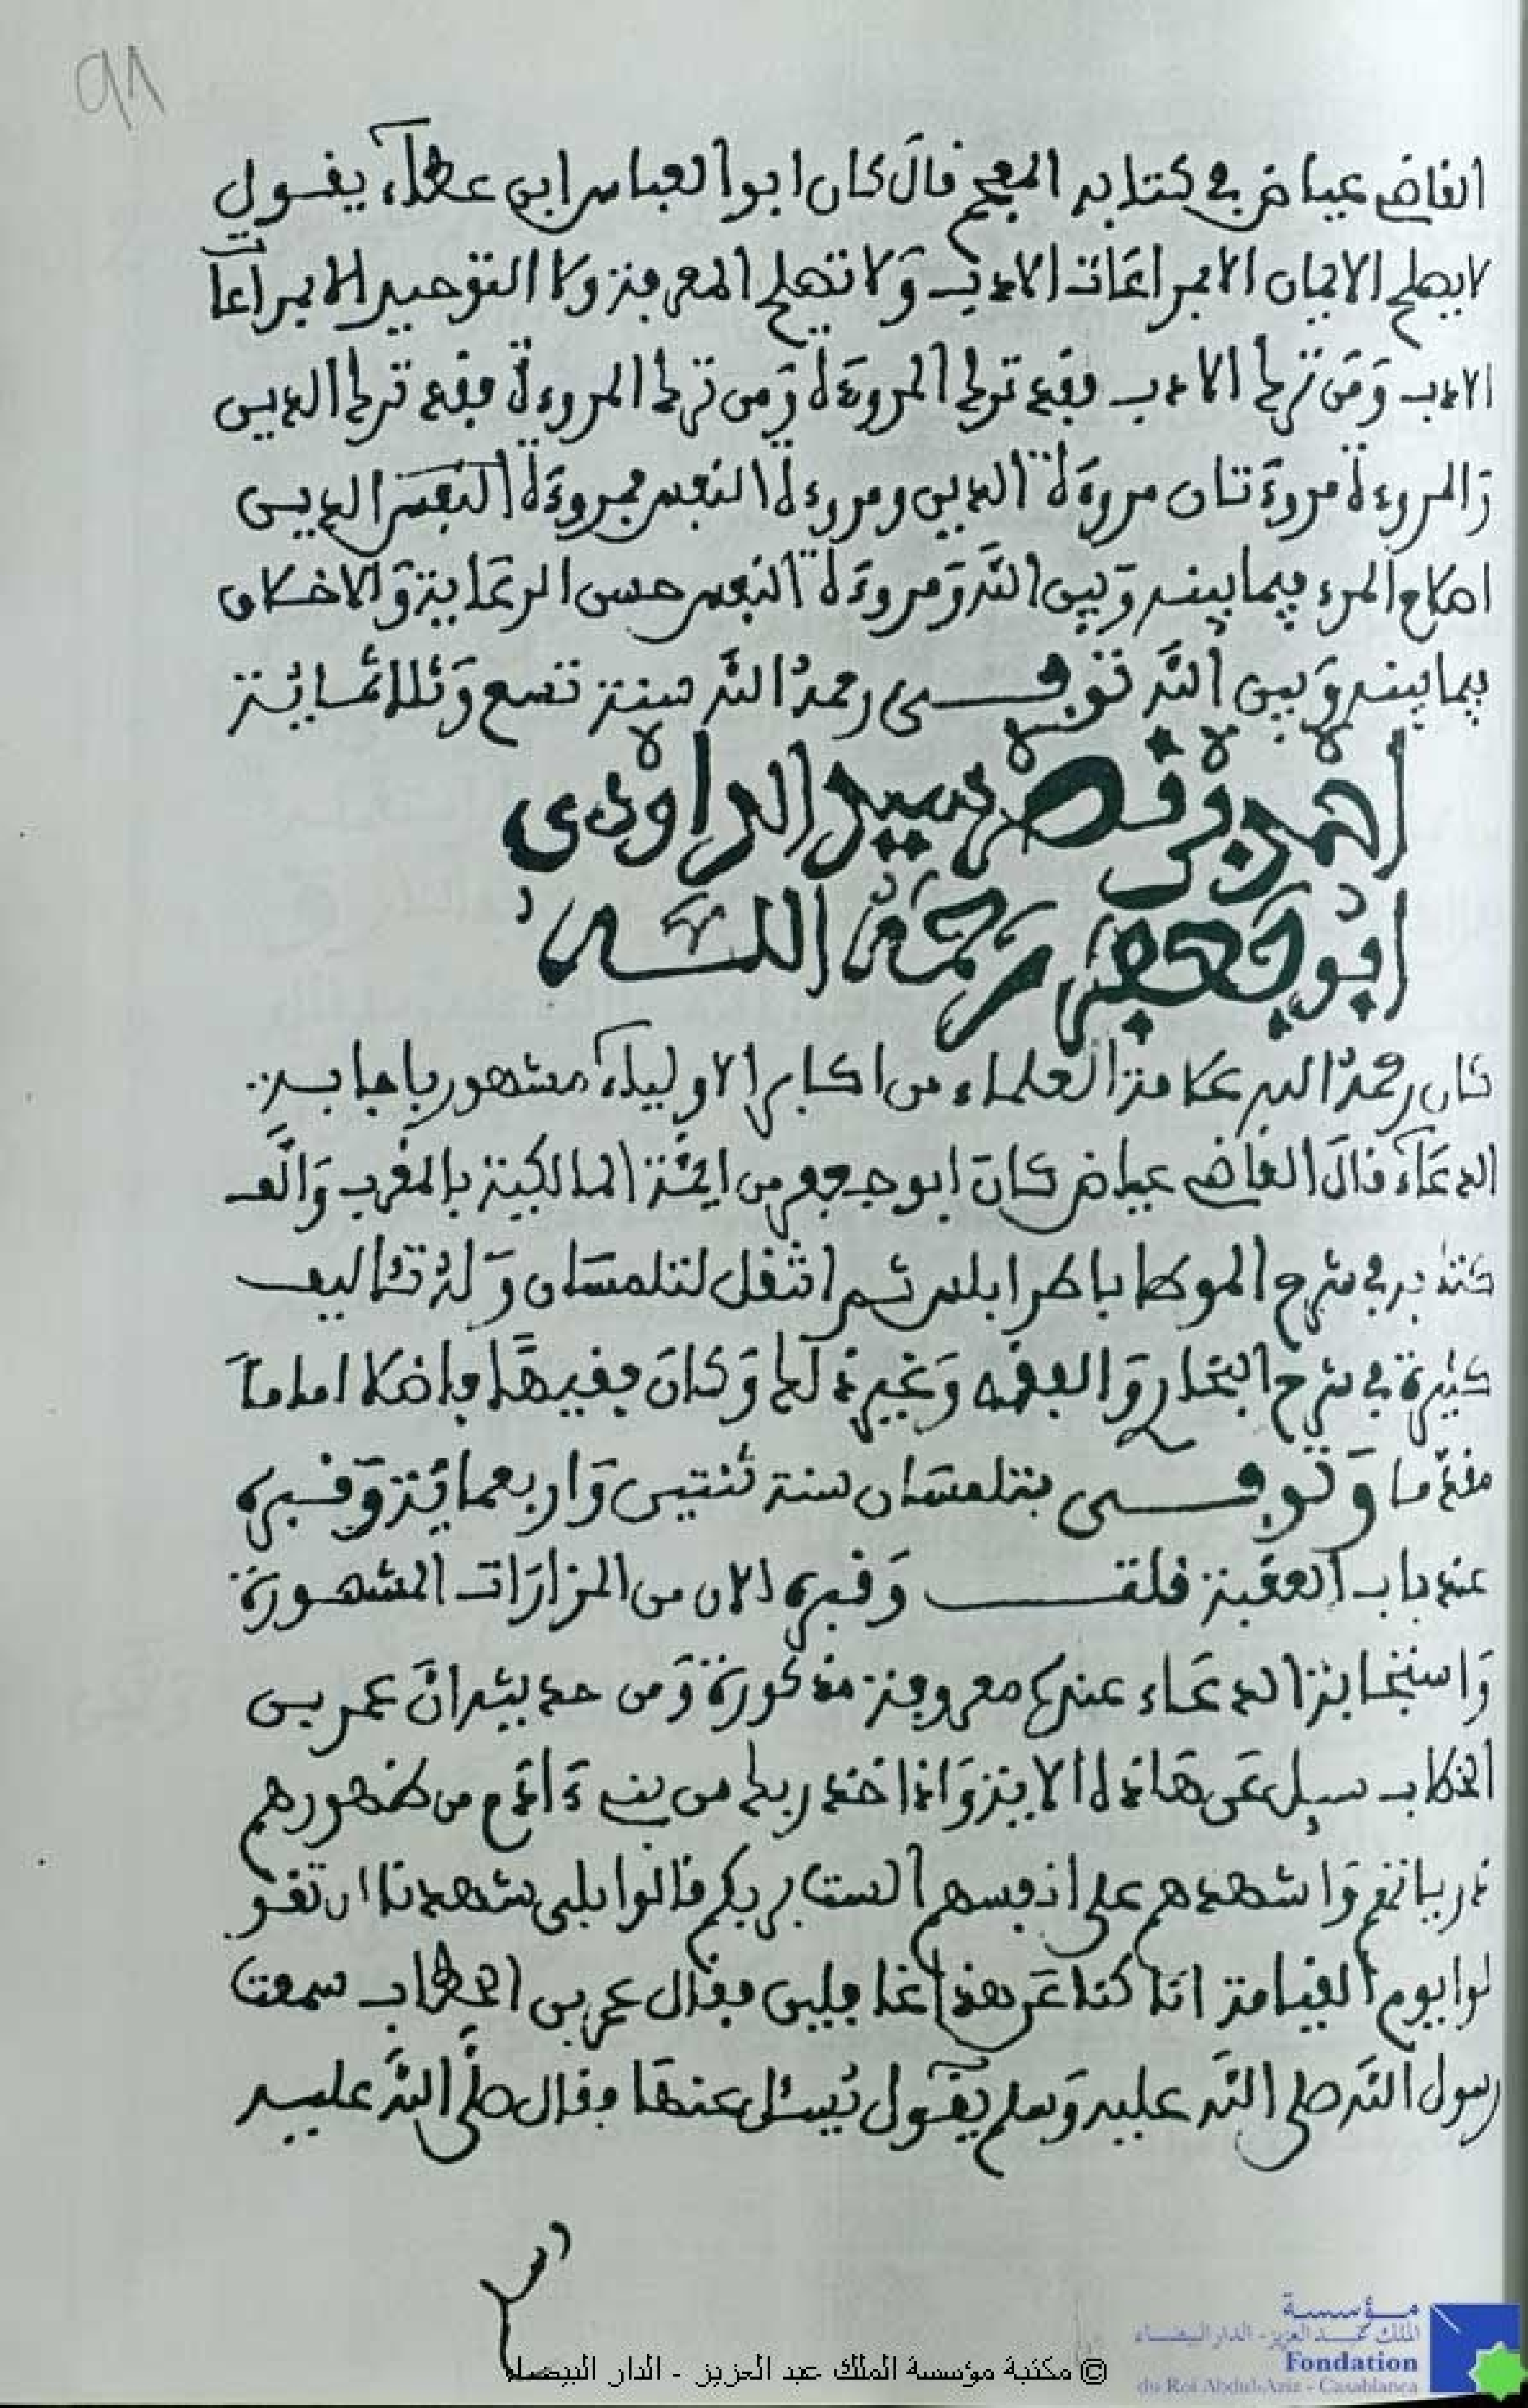 ٩٨
القاضى عياض في كتابه المعجم قال كان ابو العباس ابن عطاء يقول
لا يصلح الايمان الا بمراعات الادب ولا تصلح المعرفة ولا التوحيد الا بمراعا
الادب ومن ترك الادب فقد ترك المروءة ومن ترك المروءة فقد ترك الدين
والمروءة مروءتان مروءة الدين ومروءة النفس فمروءة الدين
المرء فيما بينه وبين الله ومروءة النفس حسن الرعاية والاخلاق
فيما بينه وبين الله توفى رحمه الله سنة تسع وثلاثمائة
احمد بن نصر سيد الداودى
ابو جعفر رحمه الله
كان رحمه الله علامة العلماء من اكابر الاولياء مشهور باجابة
الدعاء قال القاضى عياض كان ابو جعفر من ايمة المالكية بالمغرب والف
كتابه في شرح الموطا باطرابلس ثم انتقل لتلمسان وله تئاليف
كثيرة في شرح البخار والفقه وغير ذلك وكان فقيها فاضلا اماما
مقدما وتوفى بتلمسان سنة ثنتين واربعمائة وقبره
عند باب العقبة قلت وقبره الان من المزارات المشهورة
واستجابة الدعاء عنده معروفة مذكورة ومن حديثه ان عمر بن
الخطاب سيل عن هاذه الاية واذا اخذ ربك من بنى ءادم من ظهورهم
ذرياتهم واشهدهم على انفسهم الست بربكم قالوا بلى شهدنا ان تقو
لوا يوم القيامة انا كنا عن هذا غافلين فقال عمر بن الخطاب سمعت
رسول الله صلى الله عليه وسلم يقول يسئل عنها فقال صلى الله عليه
© مكتبة مؤسسة الملك عبد العزيز - الدار البيضاء
مؤسسة
الملك عبد العزيز - الدار البيضاء
Fondation
du Roi Abdul-Aziz - Casablanca